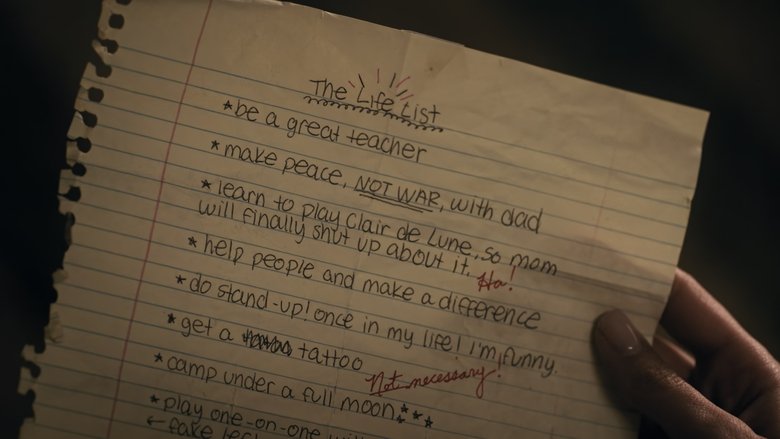 The Life List
*be a great teacher
*make peace, NOT WAR, with dad
*learn to play Clair de Lune, so mom
will finally shut up about it. Ha!
*help people and make a difference
*do stand-up! once in my life! I'm funny.
*get a tattoo Not necessary!
*camp under a full moon
*play one-on-one
←fake